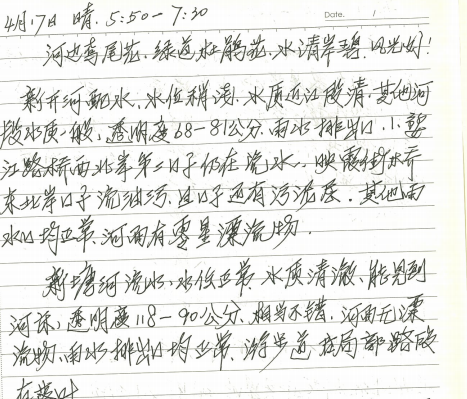 4月17日 晴. 5:50-7:30
Date. /
河边鸢尾花, 绿道杜鹃花, 水清岸碧, 风光好!
新开河配水, 水位稍浊, 水质近江段清, 其他河
段水质一般, 透明度68-81公分, 雨水排出口, 小婆
江路桥西北岸第二口子仍在流水, 映霞街桥
东北岸口子流油污, 且口子还有污泥层. 其他雨
水口均正常, 河面有零星漂流物.
新塘河流水, 水位正常 水质清澈, 能见到
河床, 透明度118-90公分, 相当不错, 河面无漂
流物, 雨水排出口均正常, 游步道 局部路段
有落叶